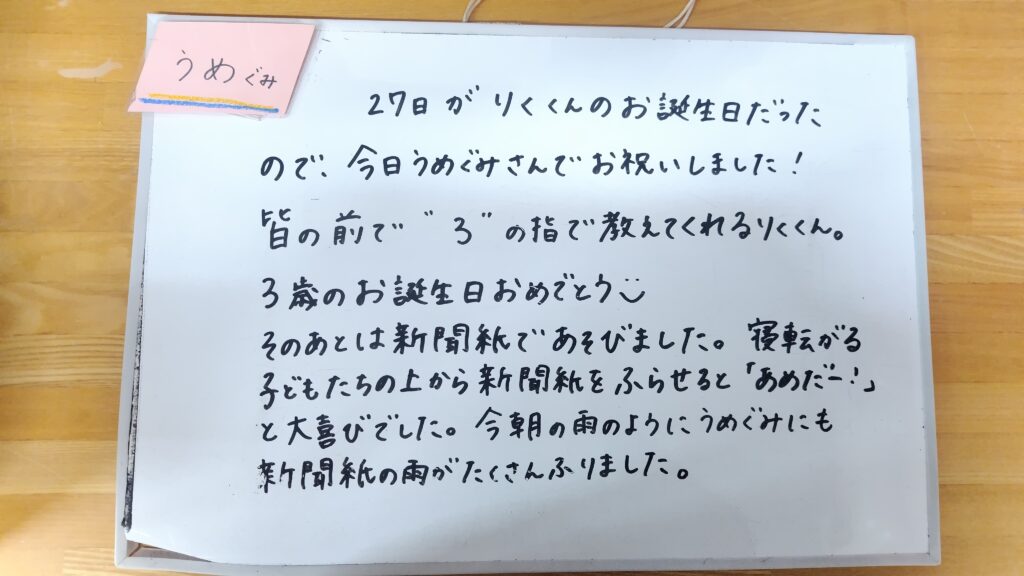 うめぐみ
27日がりくくんのお誕生日だった
ので、今日うめぐみさんでお祝いしました！
皆の前で"3"の指で教えてくれるりくくん。
3歳のお誕生日おめでとう
そのあとは新聞紙であそびました。寝転がる
子どもたちの上から新聞紙をふらせると「あめだー！」
と大喜びでした。今朝の雨のようにうめぐみにも
新聞紙の雨がたくさんふりました。